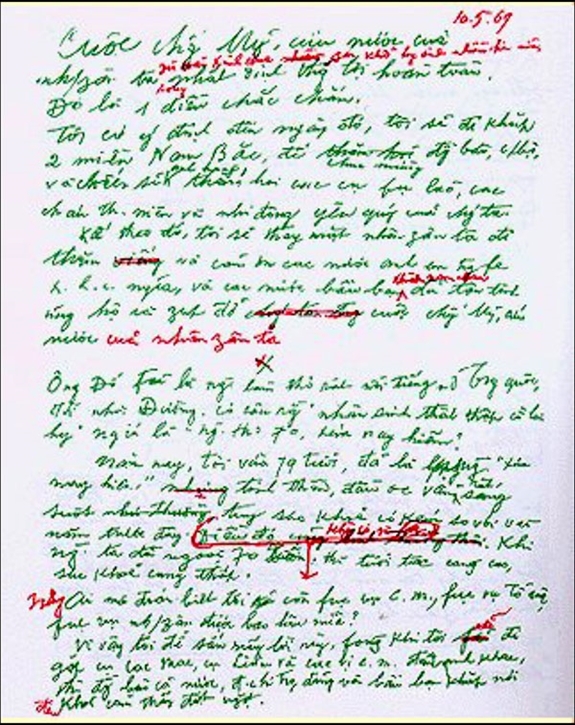 10.5.69
Cuộc chống Mỹ, cứu nước của
nh/zân ta
dù phải kinh qua
phải hy sinh
nhất định thắng lợi hoàn toàn.
Đó là 1 điều chắc chắn.
Tôi có ý định đến ngày đó, tôi sẽ đi khắp
2 miền Nam Bắc, để
chúc mừng
đồng bào,
và chiến sĩ
thăm hỏi các cụ fụ lão, các
cháu th. niên và nhi đồng yêu quý của chúng ta.
Kế theo đó, tôi sẽ thay mặt nhân zân ta đi
thăm và cám ơn các nước anh em trong fe
x. h. c. nghĩa, và các nước bầu bạn
đã tận tình
ủng hộ và zúp đỡ cuộc chống Mỹ, cứu
nước của nhân zân ta
x
Ông Đỗ Fủ là người làm thơ rất nổi tiếng ở Trung quốc,
đời nhà Đường. có câu rằng "nhân sinh thất thập cổ lai
hy" nghĩa là "người thọ 70, xưa nay hiếm".
Năm nay, tôi vừa 79 tuổi, đã là lớp người "xưa
nay hiếm" tinh thần, đầu óc vẫn
sáng
suốt
tuy sức khoẻ có kém so với vài
năm trước đây.
Khi
người ta đã ngoài 70 xuân, thì tuổi tác càng cao,
sức khoẻ càng thấp.
Nhưng Ai mà đoán biết tôi còn fục vụ c. m., fục vụ Tổ quốc,
fục vụ nh/zân được bao lâu nữa?
Vì vậy tôi để sẵn mấy lời này, fòng khi tôi
sẽ
đi
gặp cụ các Mác, cụ Lênin và các vị c. m. đàn anh khác,
thì đồng bào cả nước, đồng chí trong đảng và bầu bạn khắp nơi
đều khỏi cảm thấy đột ngột.